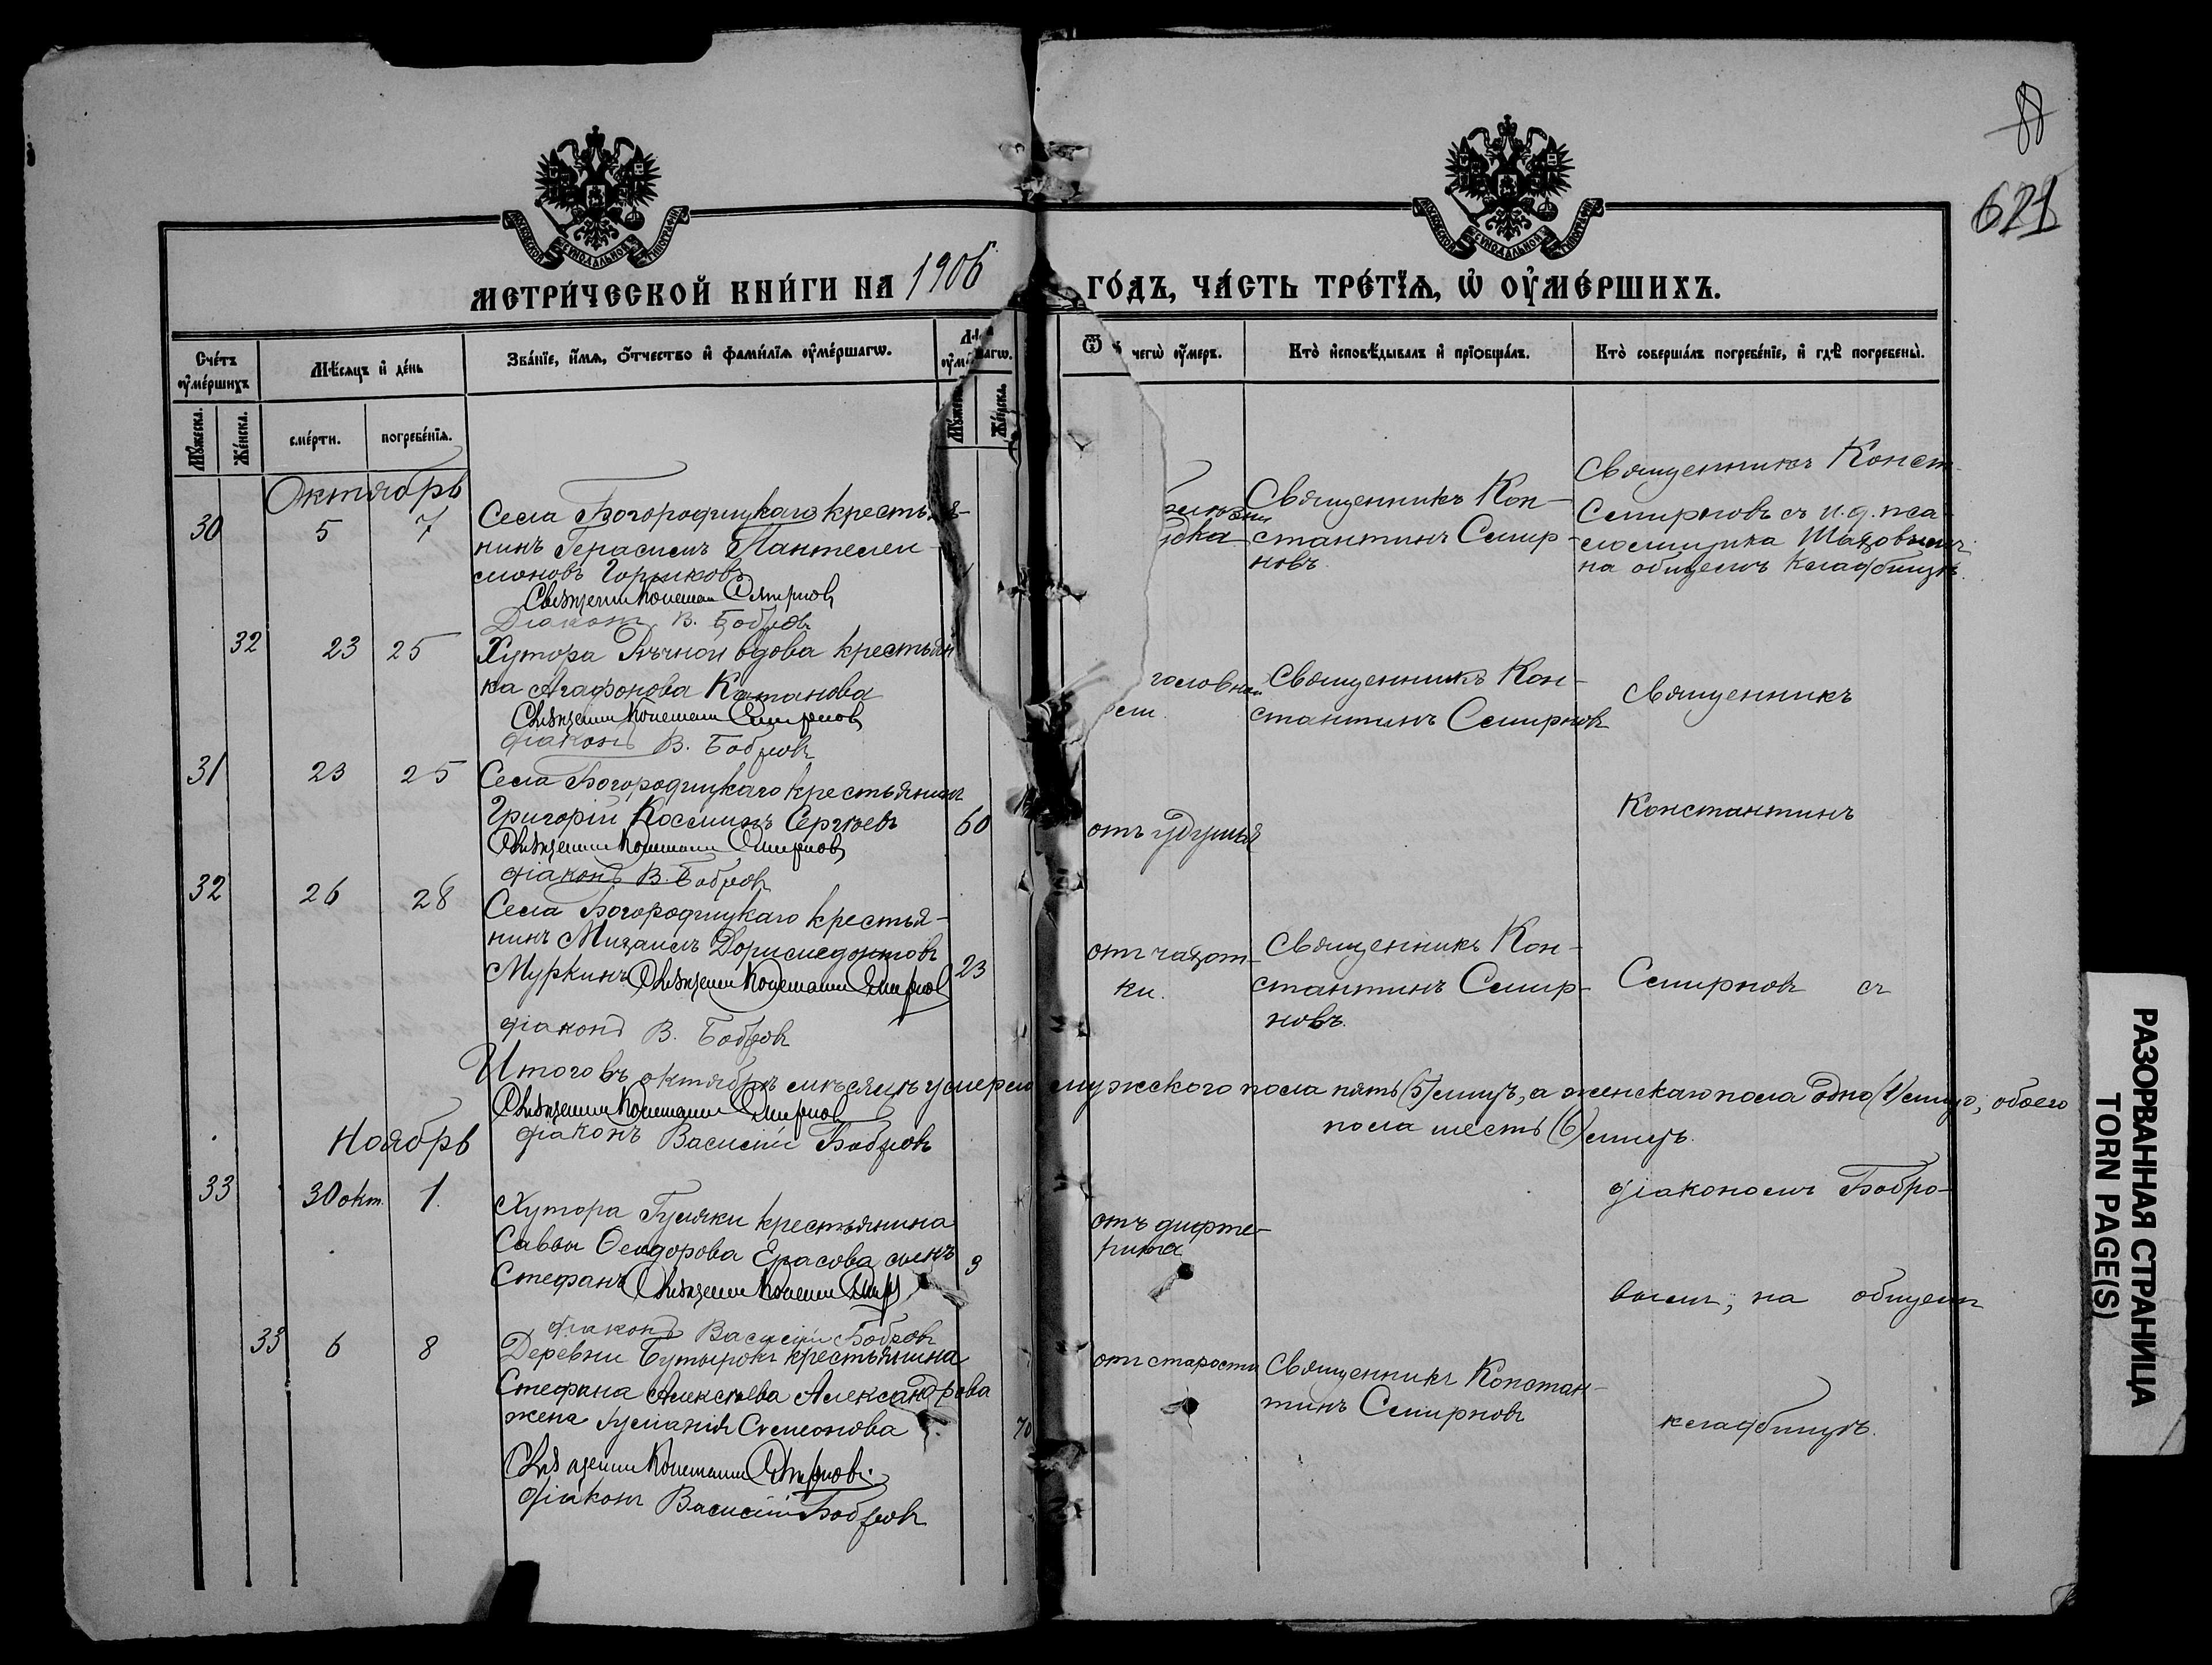 88
621
МЕТРИ́ЧЕСКОЙ КНИ́ГИ НА 1906 ГО́ДЪ, ЧА́СТЬ ТРЕ́ТІѦ, Ѡ҆ ОУ҆МЕ́РШИХЪ.
Сче́тъ оу҆ме́ршихъ
Мѣ́сяцъ и҆ де́нь
Зва́нїе, и҆́мѧ, ѻ҆́тчество и҆ фами́лїѧ оу҆ме́ршагѡ.
Ѿ чегѡ̀ оу҆́меръ.
Кто̀ и҆сповѣ́дывалъ и҆ прїѡбща́лъ.
Кто̀ соверша́лъ погребе́нїе, и҆ гдѣ̀ погребены̀.
Мꙋ́жеска.
Же́нска.
сме́рти.
погребе́нїѧ.
Мꙋ́жеска.
Же́нска.
Октябрь
30 5 7 Села Богородицкаго крестья-
нинъ Герасимъ Пантелеи-
моновъ Горшковъ
Священникъ Константинъ Смирновъ
Діаконъ В. Бобровъ
Священникъ Кон-
стантинъ Смир-
новъ.
Священникъ Конст.
Смирновъ съ и.д. пса-
ломщика
на общемъ кладбищѣ.
32 23 25 Хутора вдова крестьян
ка Агафонова Катанова
Священникъ Константинъ Смирновъ
діаконъ В. Бобровъ
головной
Священникъ Кон-
стантинъ Смирновъ
Священникъ
31 23 25 Села Богородицкаго крестьянинъ
Григорій Косминъ Сергѣевъ 60
Священникъ Константинъ Смирновъ
діаконъ В. Бобровъ
отъ удушья
Константинъ
32 26 28 Села Богородицкаго крестья-
нинъ Михаилъ Доримедонтовъ
Муркинъ Священникъ Константинъ Смирновъ 23
діаконъ В. Бобровъ
отъ чахот-
ки.
Священникъ Кон-
стантинъ Смир-
новъ.
Смирновъ съ
Итого въ октябрѣ мѣсяцѣ умерло мужского пола пять (5) лицъ, а женскаго пола одно (1) лицо, обоего
пола шесть (6) лицъ.
Священникъ Константинъ Смирновъ
діаконъ Василій Бобровъ
Ноябрь
33 30 окт. 1. Хутора Гусяки крестьянина
Саввы Ѳеодорова Ерасова сынъ
Стефанъ Священникъ Константинъ Смир 9
діаконъ Василій Бобровъ
отъ дифте-
рита
діакономъ Бобро-
вымъ, на общемъ
33 6 8 Деревни Бутырокъ крестьянина
Стефана Алексѣева Александрова
жена Іуліанія Симеонова 70
Священникъ Константинъ Смирновъ.
діаконъ Василій Бобровъ
отъ старости
Священникъ Констан-
тинъ Смирновъ
кладбищѣ.
РАЗОРВАННАЯ СТРАНИЦА
TORN PAGE(S)